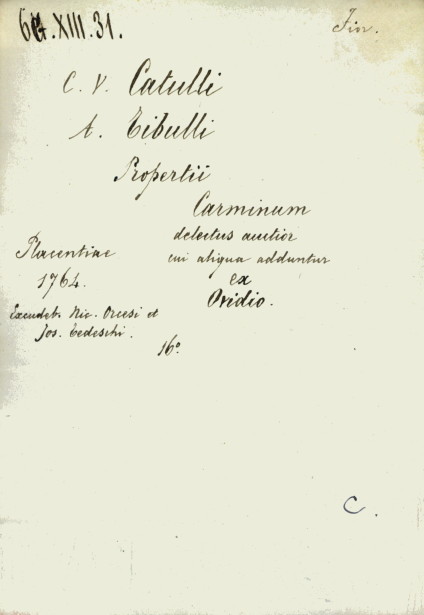 6G.XIII.31.
Fir.
C. V. Catulli
A. Tibulli
Propertii
Carminum
delectus auctior
cui aliqua adduntur
ex
Ovidio.
Placentiae
1764.
Excudeb. Nic. Orcesi et
Jos. Tedeschi.
16°
C.